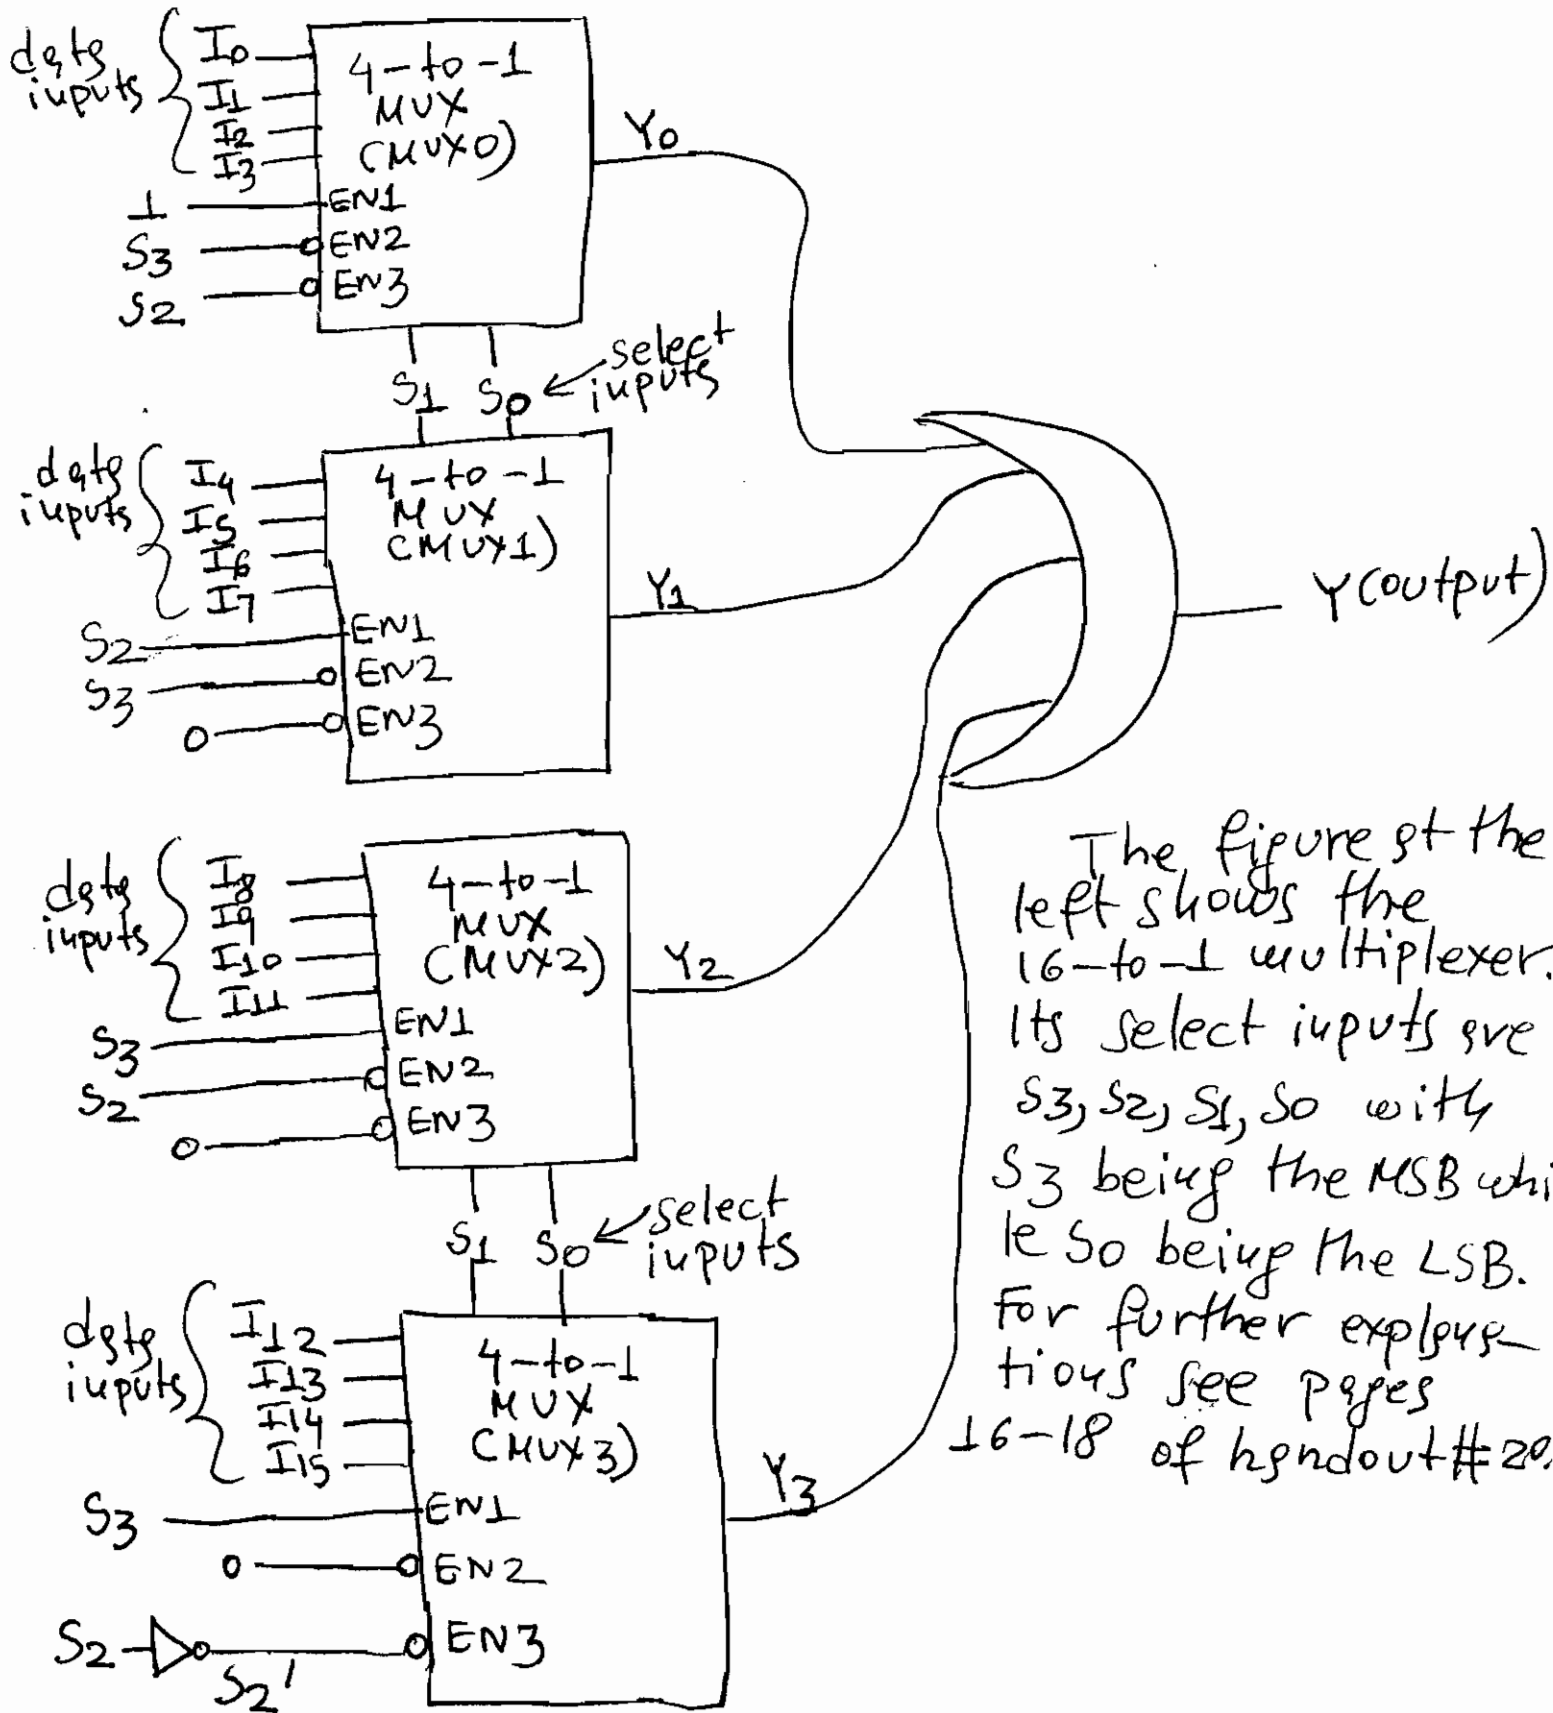 data
inputs
I0
I1
I2
I3
4-to-1
MUX
(MUX0)
Y0
1
EN1
S3
EN2
S2
EN3
S1 S0
select
inputs
data
inputs
I4
I5
I6
I7
4-to-1
MUX
(MUX1)
Y1
Y(output)
S2
EN1
S3
EN2
0
EN3
data
inputs
I8
I9
I10
I11
4-to-1
MUX
(MUX2)
Y2
S3
EN1
S2
EN2
0
EN3
S1 S0
select
inputs
data
inputs
I12
I13
I14
I15
4-to-1
MUX
(MUX3)
Y3
S3
EN1
0
EN2
S2
S2'
EN3
The figure at the
left shows the
16-to-1 multiplexer.
Its select inputs are
S3, S2, S1, S0 with
S3 being the MSB whi
le S0 being the LSB.
For further explana-
tions see pages
16-18 of handout #20.